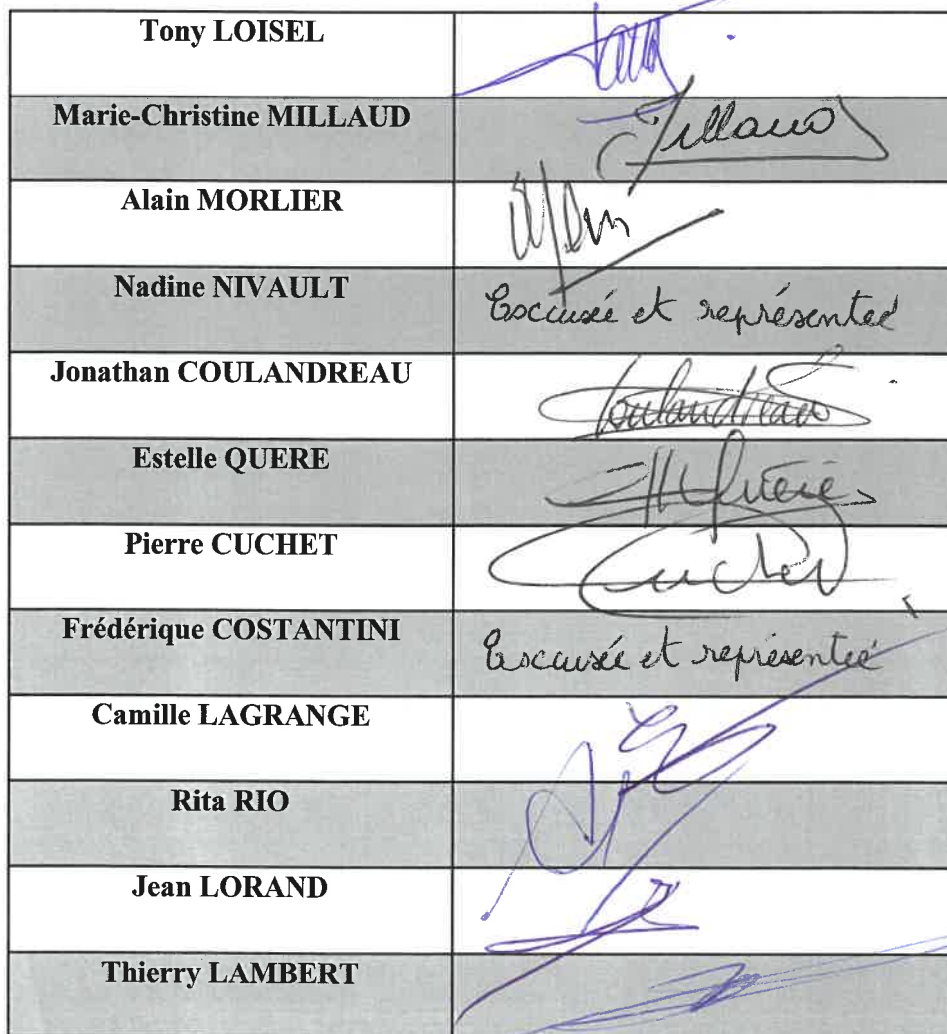 Tony LOISEL
Marie-Christine MILLAUD
Millaud
Alain MORLIER
Nadine NIVAULT
Excusée et représentée
Jonathan COULANDREAU
Coulandreau
Estelle QUERE
Pierre CUCHET
Cuchet
Frédérique COSTANTINI
Excusée et représentée
Camille LAGRANGE
Rita RIO
Jean LORAND
Thierry LAMBERT